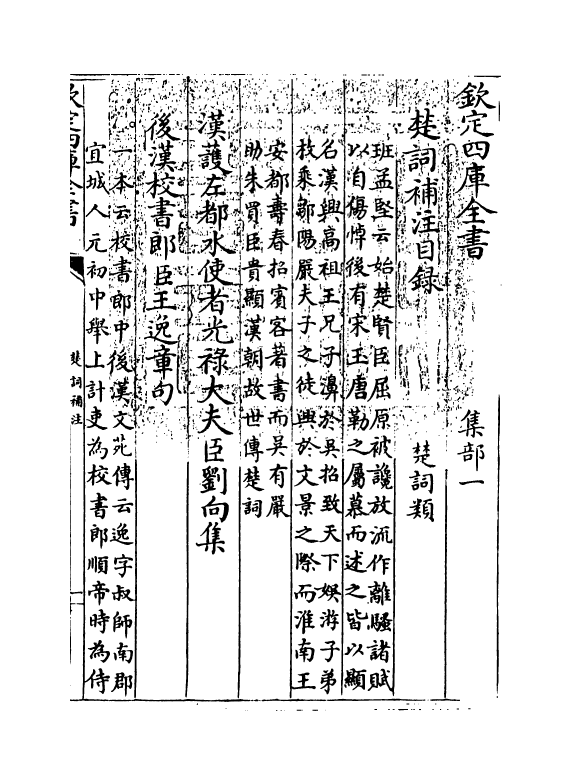 欽定四庫全書
集部一
楚詞補注目録
楚詞類
班孟堅云始楚賢臣屈原被讒放流作離騷諸賦
以自傷悼後有宋玉唐勒之屬慕而述之皆以顯
名漢興高祖王兄子濞於吳招致天下娛游子弟
枚乘鄒陽嚴夫子之徒興於文景之際而淮南王
安都壽春招賓客著書而吳有嚴
助朱買臣貴顯漢朝故世傳楚詞
漢護左都水使者光祿大夫臣劉向集
後漢校書郎臣王逸章句
一本云校書郎中後漢文苑傳云逸字叔師南郡
宜城人元初中舉上計吏為校書郎順帝時為侍
欽定四庫全書
楚詞補注
一